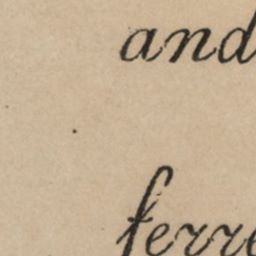 and
ferre